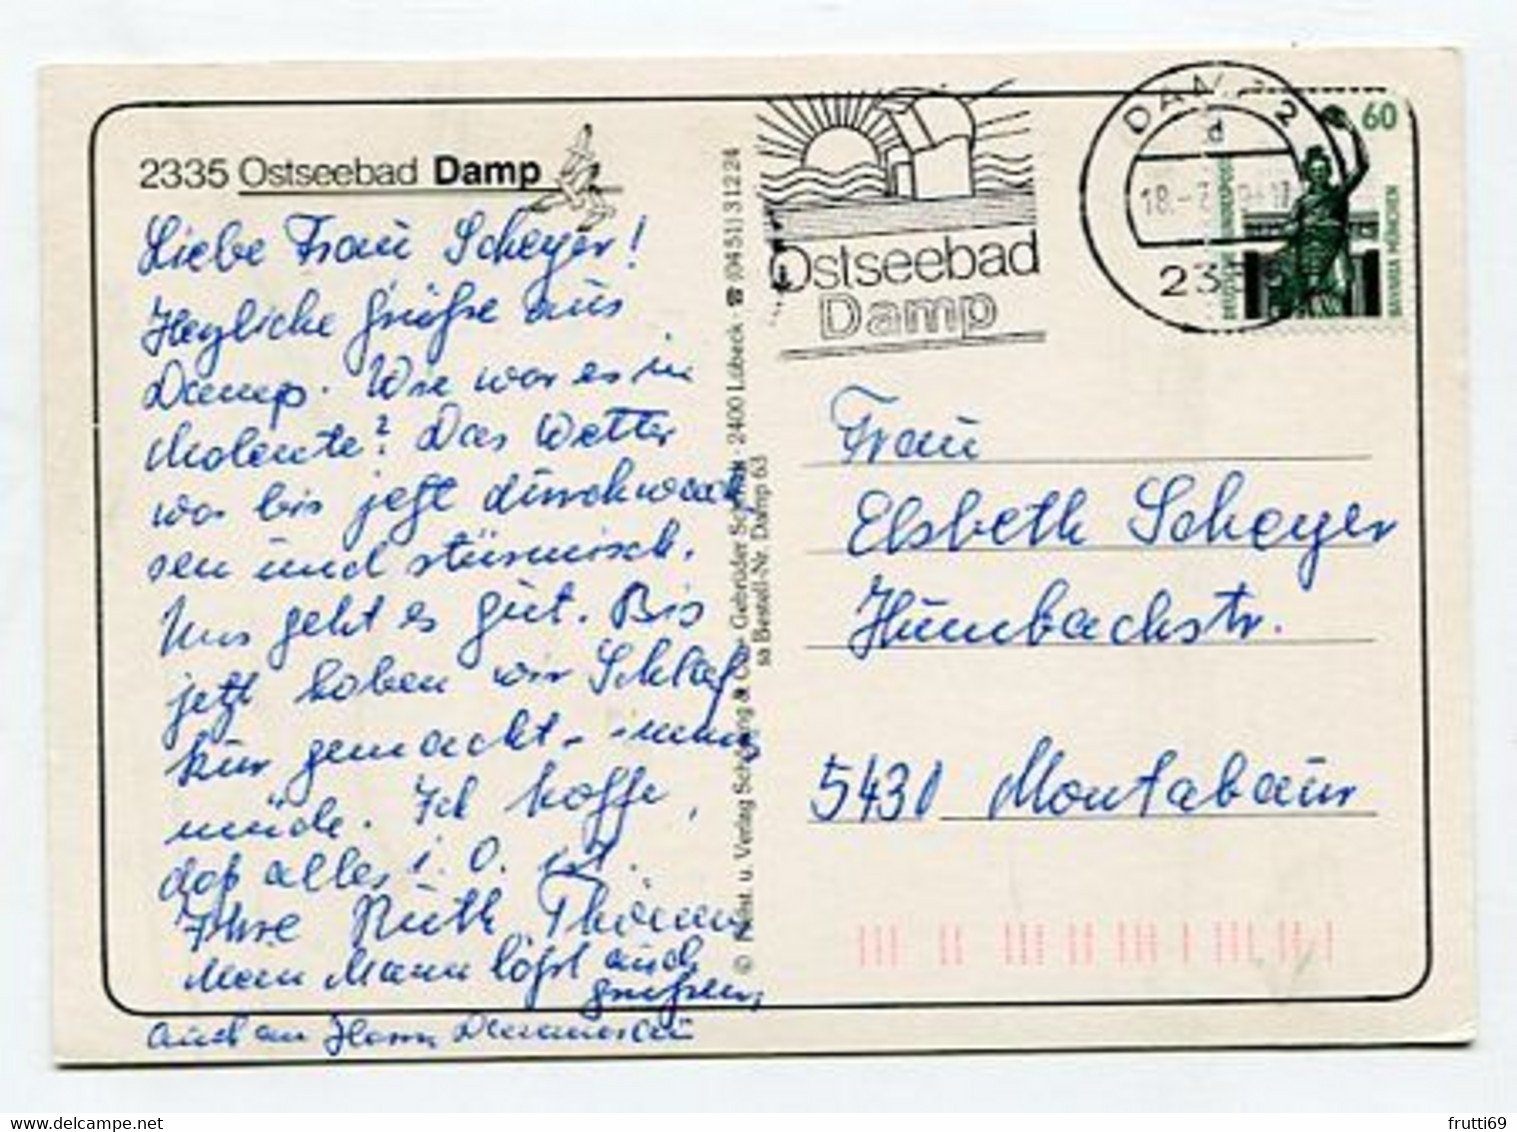 2335 Ostseebad Damp
Liebe Frau Scheyer!
Herzliche Grüße aus
Damp. Wie war es in
Molente? Das Wetter
war bis jetzt durchwach
sen und stürmisch.
Uns geht es gut. Bis
jetzt haben wir Schlaf
kur gemacht - immer
müde. Ich hoffe,
daß alles i. O. ist.
Ihre Ruth
Mein Mann läßt auch
grüßen,
auch an Herrn
© Kunst. u. Verlag Gebrüder · 2400 Lübeck · ☎ (0451) 31224
sa Bestell-Nr. Damp 63
Ostseebad
Damp
DAMP 2
d
18.-7.
2335
60
DEUTSCHE BUNDESPOST
BAVARIA MÜNCHEN
Frau
Elsbeth Scheyer
Humbachstr.
5430 Montabaur
www.delcampe.net
frutti69